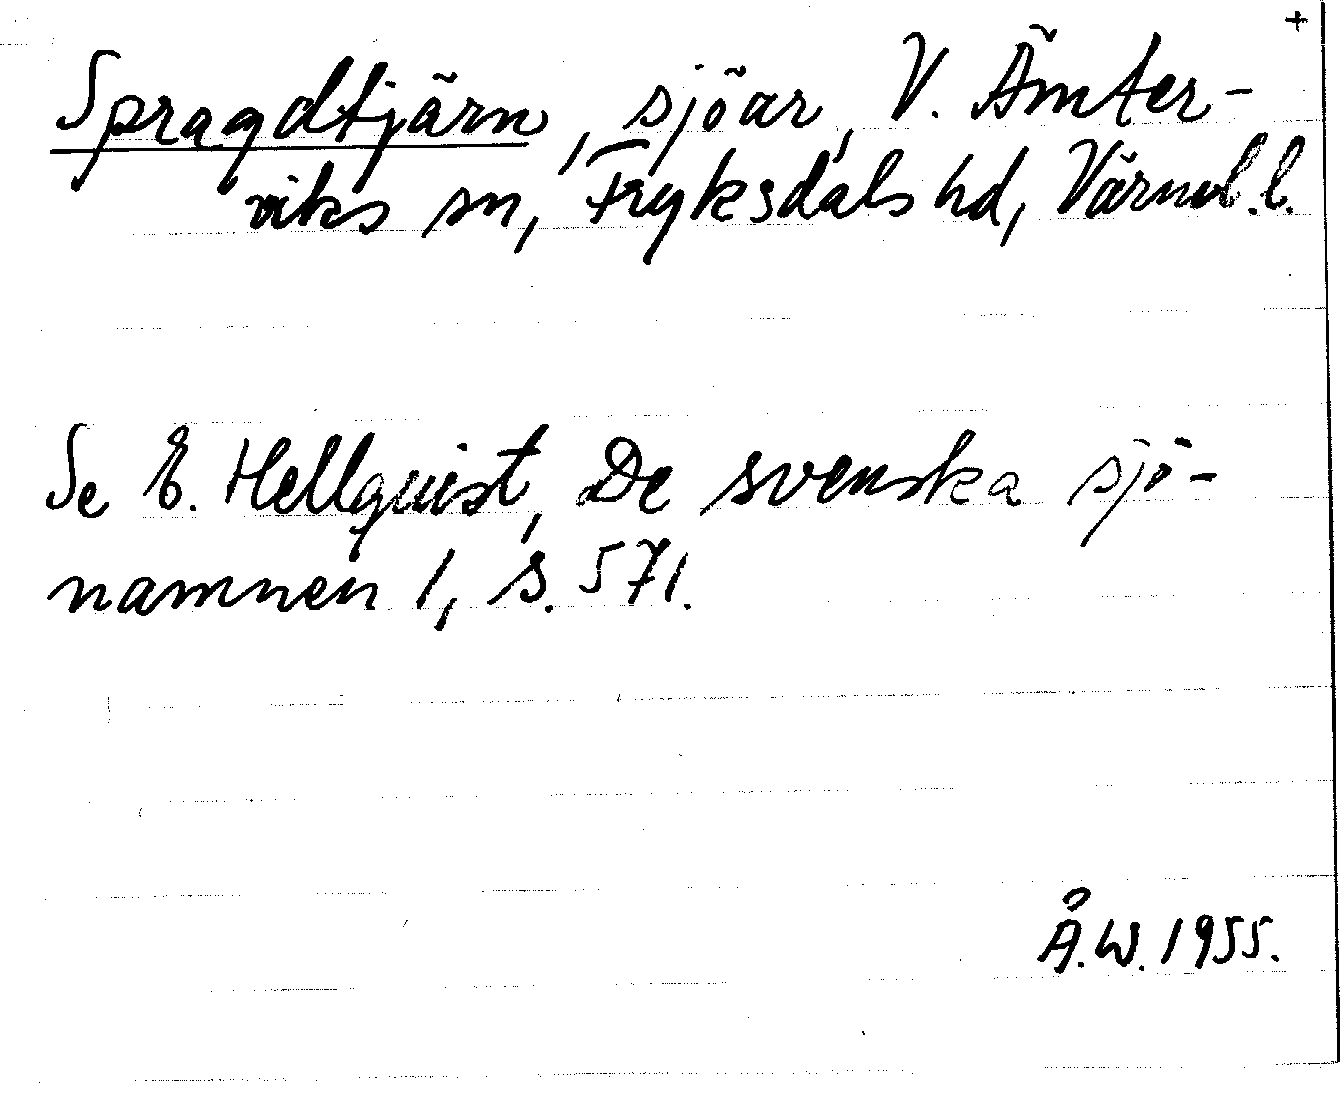 +
Spragdtjärn, sjöar, V. Ämter-
viks sn, Fryksdals hd, Värml. l.
Se E. Hellquist, De svenska sjö-
namnen 1, s. 571.
Å.W. 1955.